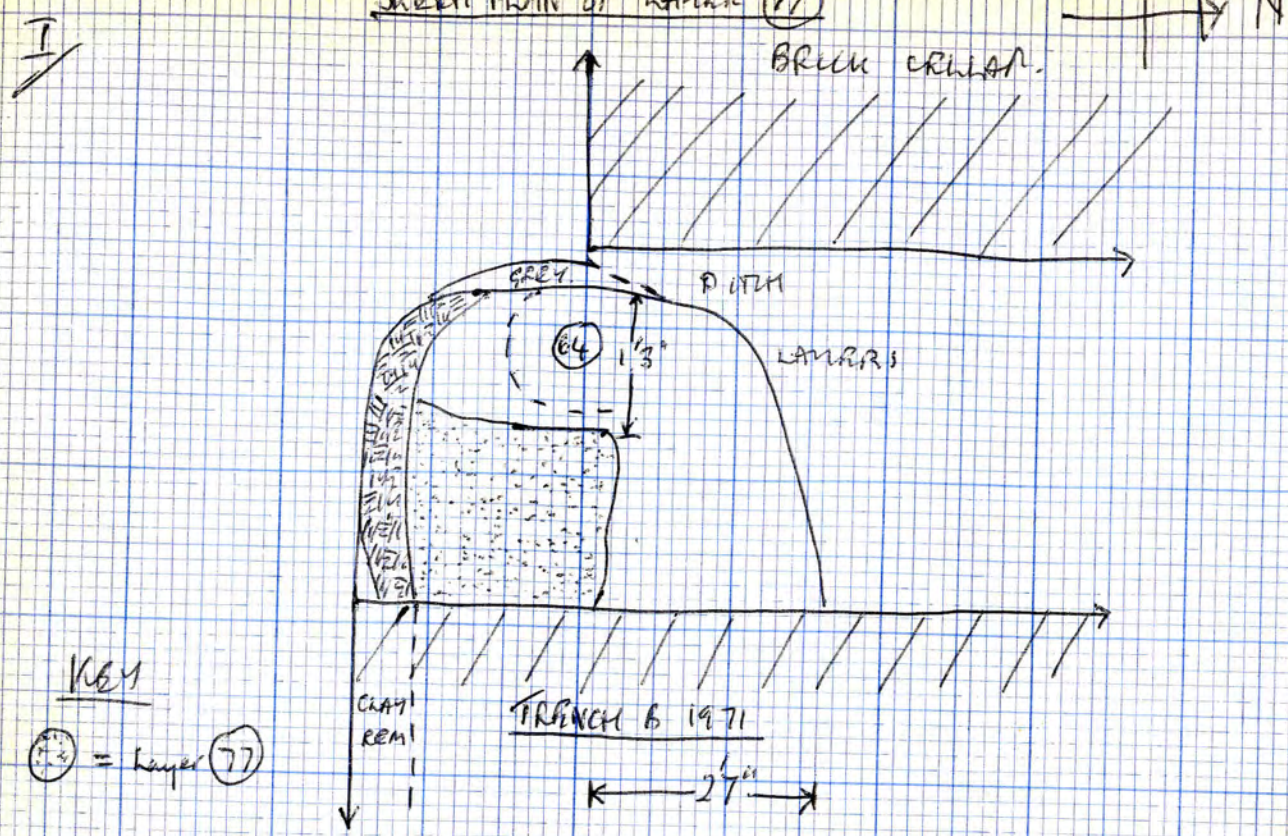 SKETCH PLAN OF LAYER (77)
N
I
BRICK CELLAR.
GREY.
DITCH
64
1'3"
LAYERS
KEY
= Layer (77)
CLAY
REM
TRENCH B 1971
2'7"